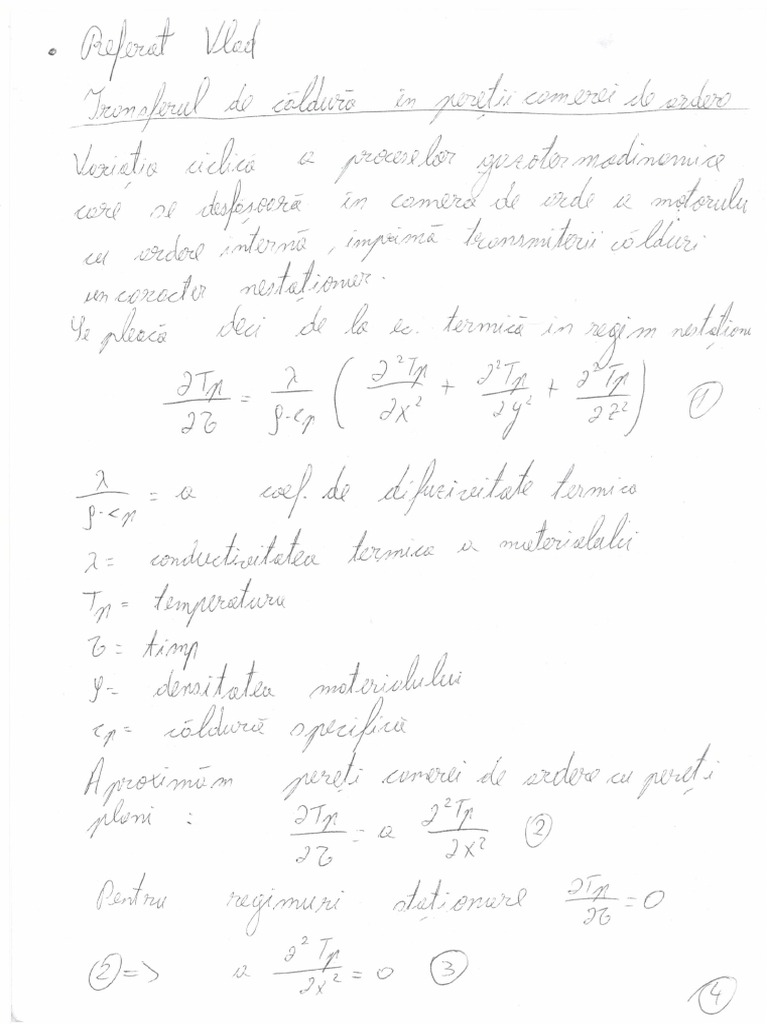 • Referat Vlad
Transferul de căldură în pereții camerei de ardere
Variația ciclică a proceselor gazotermodinamice
care se desfășoară în camera de arde a motorulu
cu ardere internă, imprimă transmiterii călduri
un caracter nestaționar.
Se pleacă deci de la ec. termică in regim nestațion
∂Tp/∂τ = λ/(ρ·cp) (∂²Tp/∂x² + ∂²Tp/∂y² + ∂²Tp/∂z²) ①
λ/(ρ·cp) = a coef. de difuzivitate termica
λ = conductivitatea termica a materialului
Tp = temperatura
τ = timp
ρ = densitatea materialului
cp = căldură specifică
Aproximăm pereți camerei de ardere cu pereți
plani : ∂Tp/∂τ = a ∂²Tp/∂x² ②
Pentru regimuri staționare ∂Tp/∂τ = 0
② => a ∂²Tp/∂x² = 0 ③
④